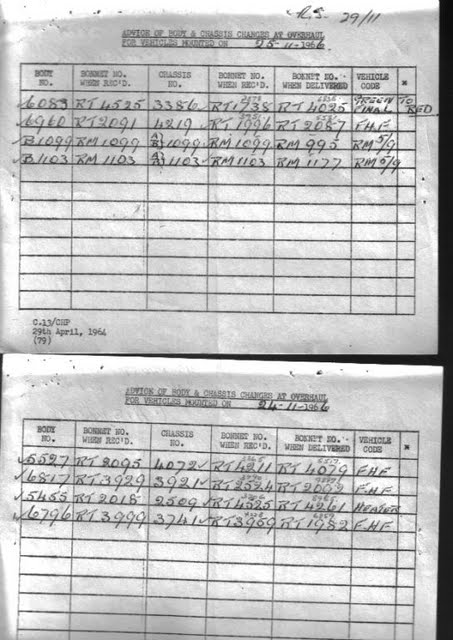 R.S. 29/11
ADVICE OF BODY & CHASSIS CHANGES AT OVERHAUL
FOR VEHICLES MOUNTED ON 25-11-1966
BODY NO. BONNET NO. WHEN REC'D. CHASSIS NO. BONNET NO. WHEN REC'D. BONNET NO. WHEN DELIVERED VEHICLE CODE *
6083 RT 4525 3386 RT 1738 RT 4025 GREEN TO FINAL RED
6960 RT 2091 4219 RT 1996 RT 2087 F.H.F
B1099 RM 1099 A) B) 1099 RM 1099 RM 995 RM 5/9
B1103 RM 1103 A) B) 1103 RM 1103 RM 1177 RM 5/9
C.13/CHP
29th April, 1964
(79)
ADVICE OF BODY & CHASSIS CHANGES AT OVERHAUL
FOR VEHICLES MOUNTED ON 24-11-1966
BODY NO. BONNET NO. WHEN REC'D. CHASSIS NO. BONNET NO. WHEN REC'D. BONNET NO. WHEN DELIVERED VEHICLE CODE *
5527 RT 2095 4072 RT 4211 RT 4079 F.H.F
6817 RT 3929 3921 RT 2524 F.H.F
5455 RT 2018 2509 RT 4525 RT 4261 HEATER
6796 RT 3999 3741 RT 3959 RT 1982 F.H.F